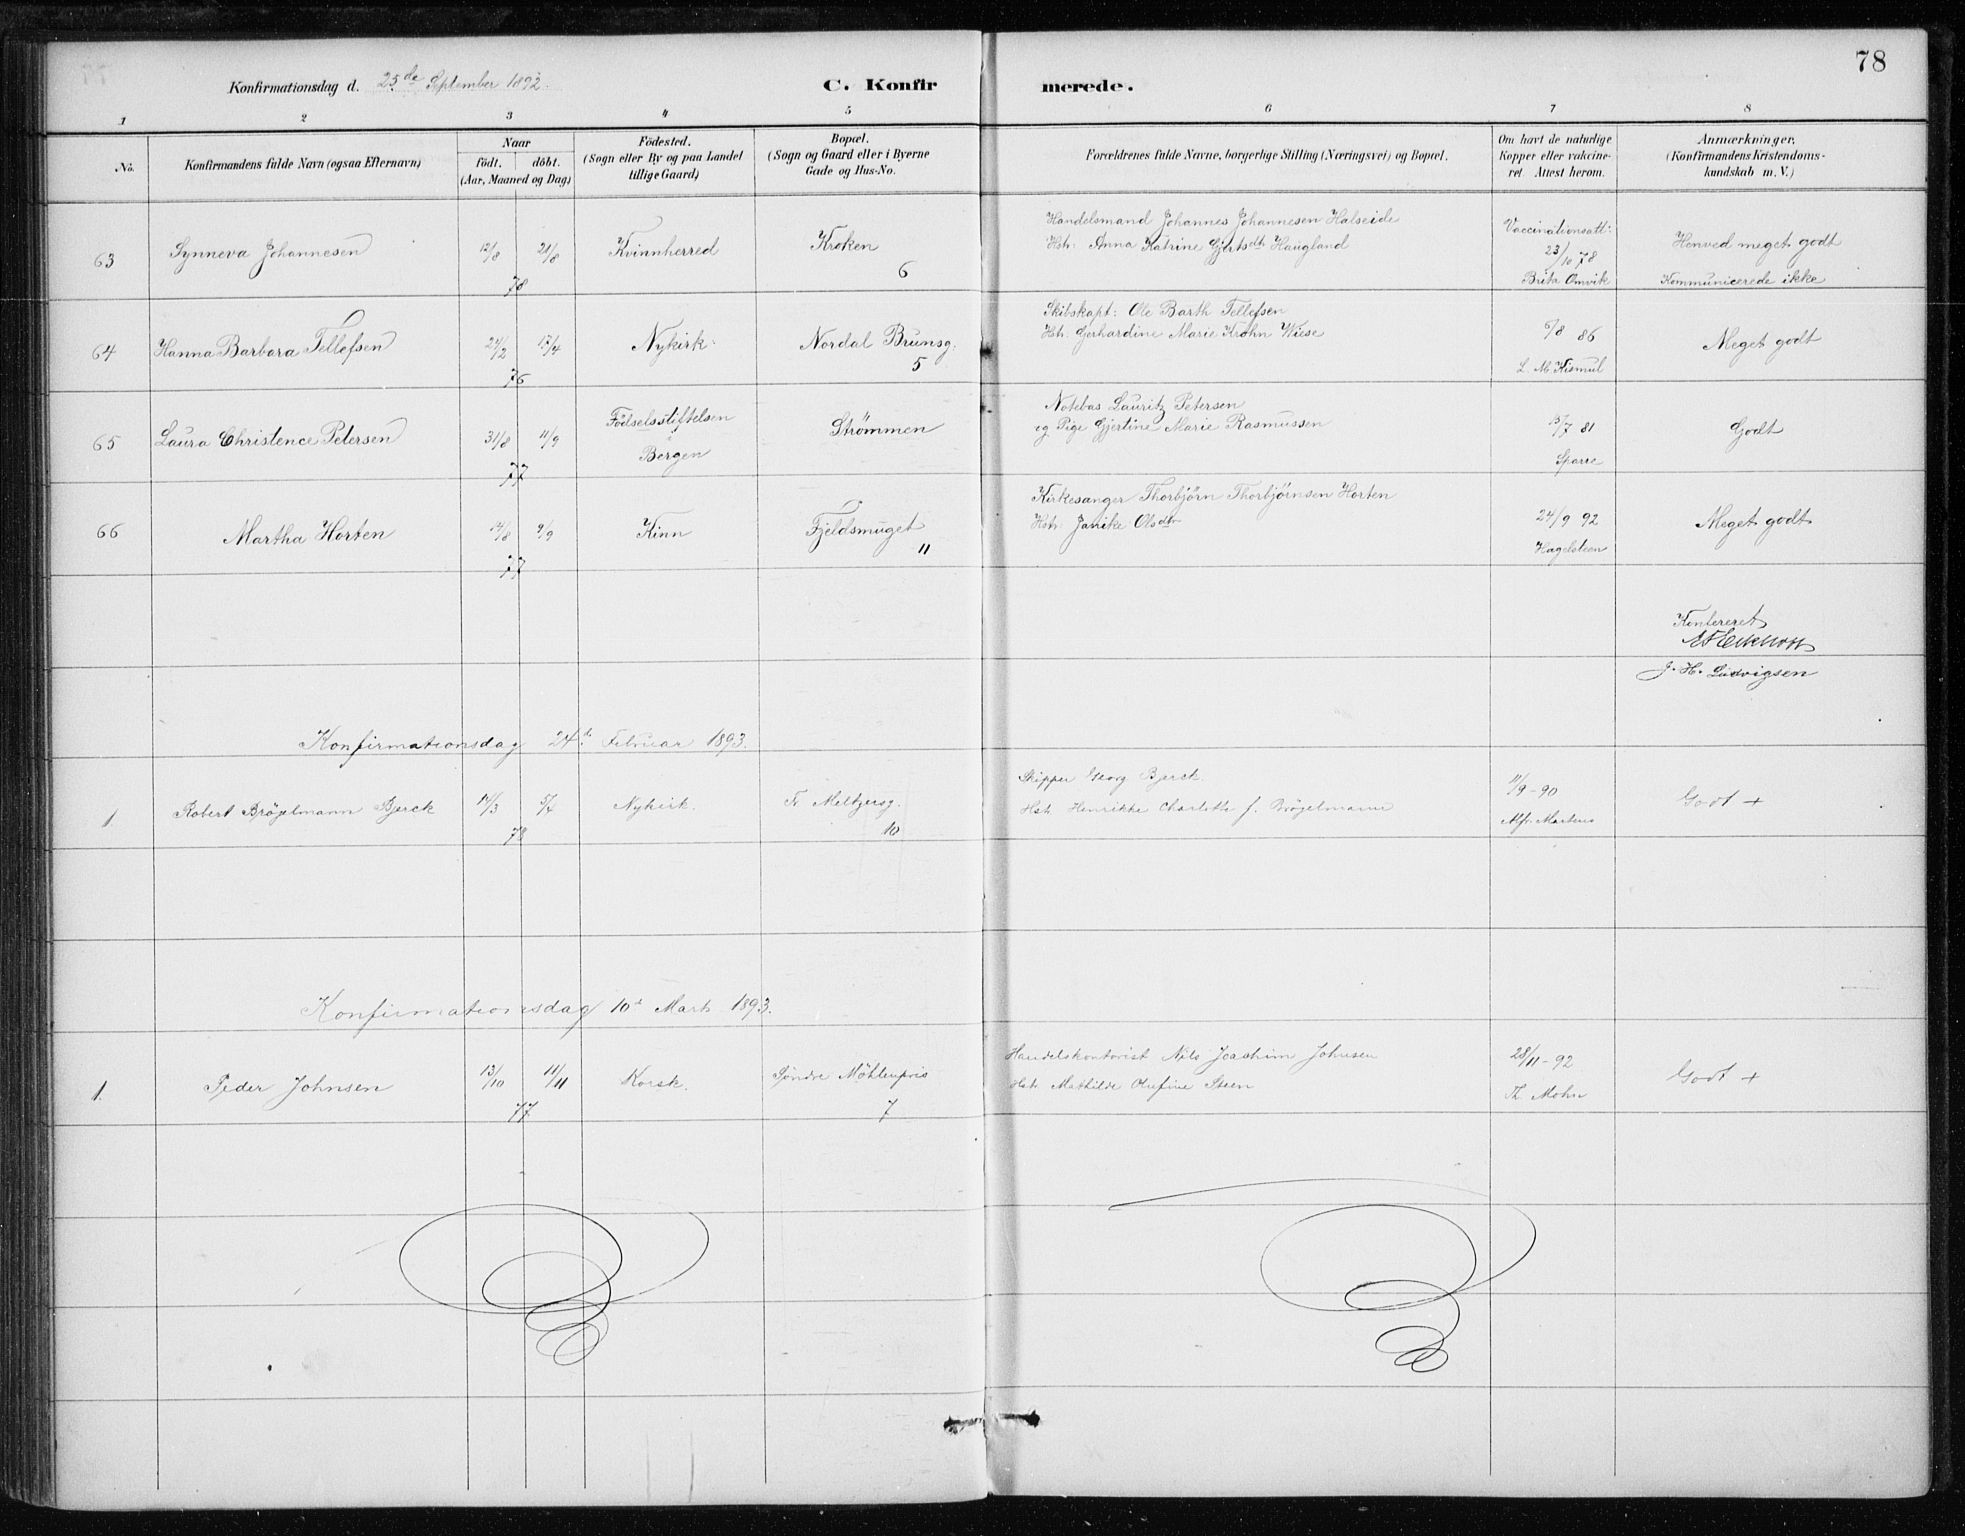 78
Konfirmationsdag d. 25de September 1892.
C. Konfirmerede.
1 2 3 4 5 6 7 8
No.
Konfirmandens fulde Navn (ogsaa Efternavn)
Naar
födt. döbt.
(Aar, Maaned og Dag)
Födested.
(Sogn eller By og paa Landet
tillige Gaard)
Bopæl.
(Sogn og Gaard eller i Byerne
Gade og Hus-No.
Forældrenes fulde Navne, borgerlige Stilling (Næringsvei) og Bopæl.
Om havt de naturlige
Kopper eller vakcine-
ret. Attest herom.
Anmærkninger.
(Konfirmandens Kristendoms-
kundskab m. V.)
63 Synneva Johannesen 12/8 21/8 78 Kvinnherred Kroken 6
Handelsmand Johannes Johannesen Halseide
Hstr: Anna Katrine Gjertsdtr Haugland
Vaccinationsatt:
23/10 78
Brita Omvik
Henved meget godt
Kommunicerede ikke
64 Hanna Barbara Tellefsen 24/2 17/4 76 Nykirk: Nordal Brunsg. 5
Skibskapt: Ole Barth Tellefsen
Hstr: Gerhardine Marie Krohn Wiese
6/8 86
L. M. Kismul
Meget godt
65 Laura Christence Petersen 31/8 11/9 77 Födselsstiftelsen i Bergen Strömmen
Notebas Lauritz Petersen
og Pige Gjertine Marie Rasmussen
13/7 81
Sparre
Godt
66 Martha Horten 14/8 9/9 77 Kinn Fjeldsmuget 11
Kirkesanger Thorbjörn Thorbjörnsen Horten
Hstr: Janike Olsdtr
24/9 92
Hagelsteen
Meget godt
Konfereret
J. H. Ludvigsen
Konfirmationsdag 24de Februar 1893.
1 Robert Brögelmann Bjerck 14/3 5/4 78 Nykirk. Fr Meltzersg. 10
Skipper Georg Bjerck.
Hstr Henrikke Charlotte f. Brögelmann
11/9-90
Alfr. Martens
Godt +
Konfirmationsdag 10de Marts 1893.
1. Peder Johnsen 13/10 11/11 77 Korsk. Söndre Möhlenpris 7
Handelskontorist Nils Joachim Johnsen
Hstr Mathilde Olufine Steen
28/11-92
Th. Mohn
Godt +